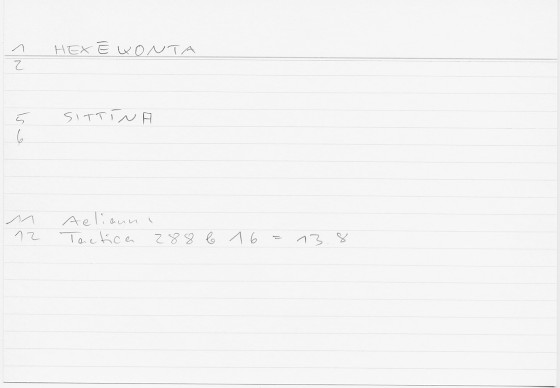 1 HEXĒKONTA
2
5 SITTĪNA
6
11 Aelianus
12 Tactica 288 b 16 = 13 8